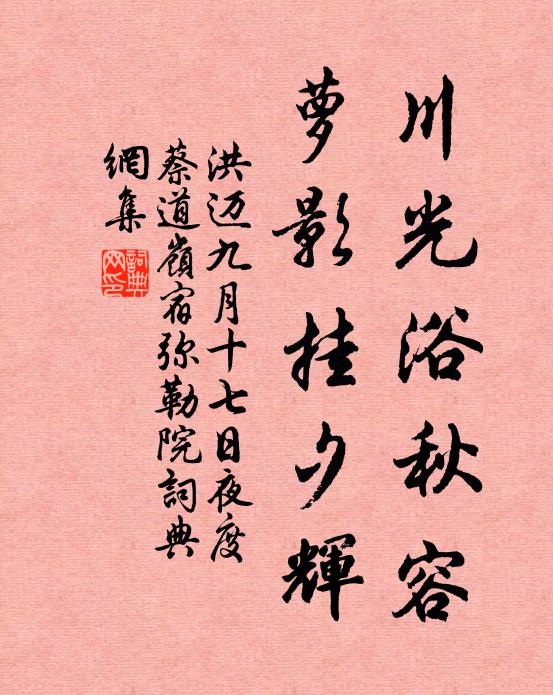 川光浴秋容
萝影挂夕輝
洪迈九月十七日夜度
蔡道嶺宿弥勒院詞典
網集
詞典
网印